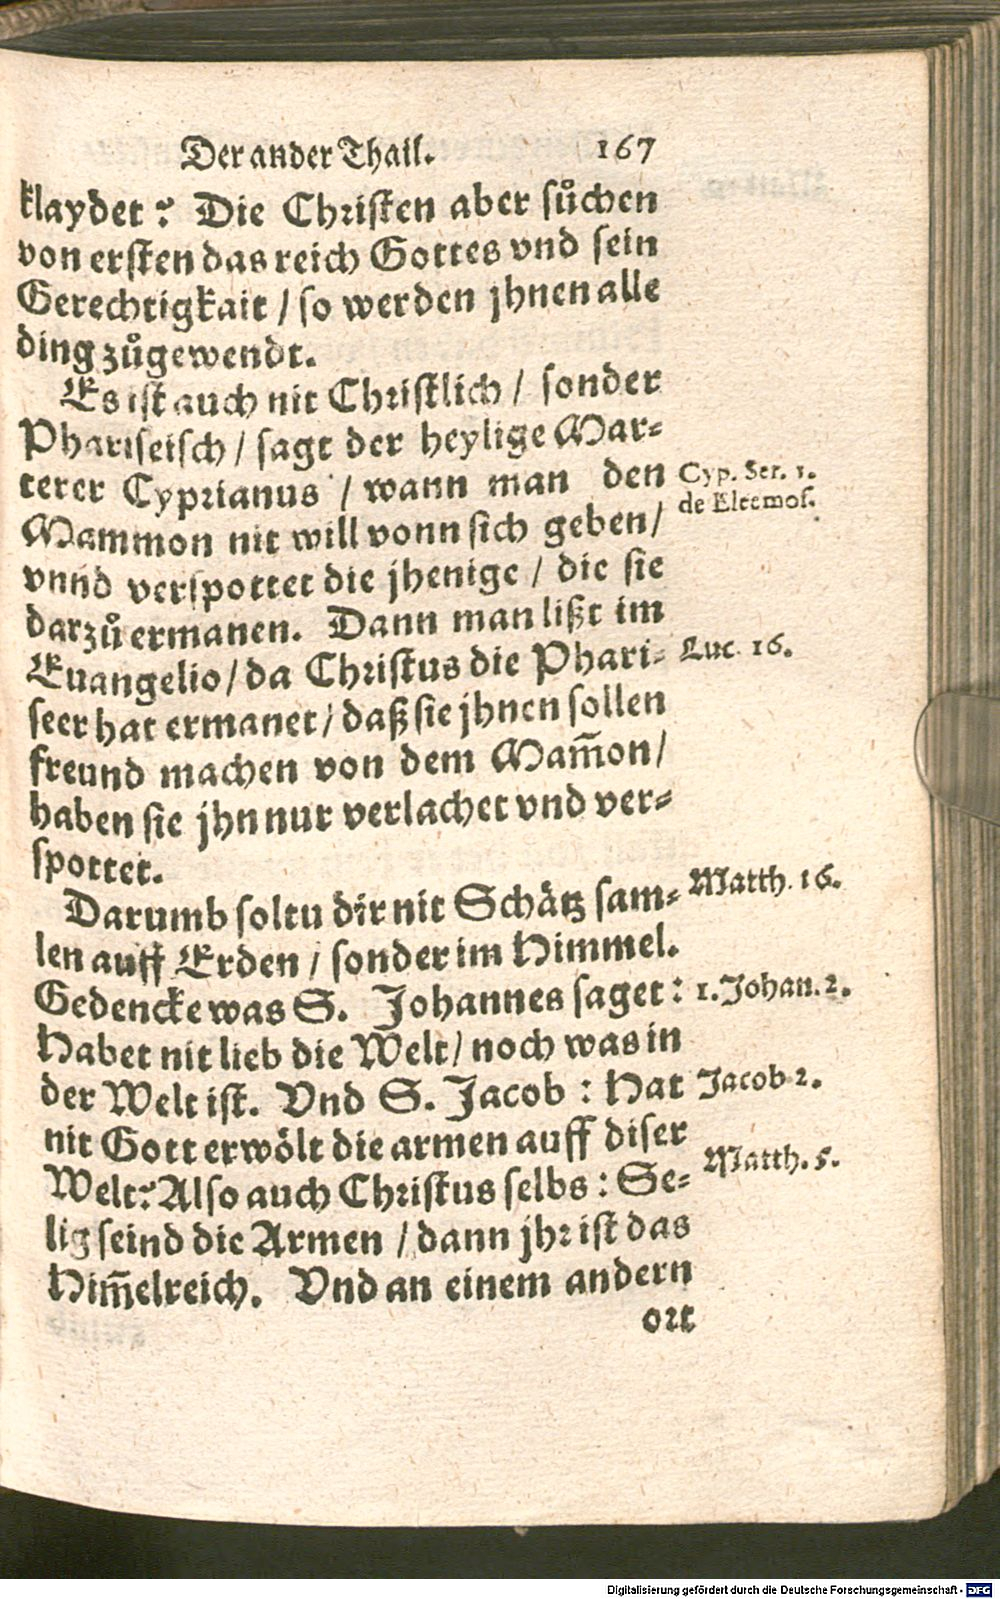 Der ander Thail. 167
klaydet? Die Christen aber suͦchen
von ersten das reich Gottes vnd sein
Gerechtigkait / so werden jhnen alle
ding zuͦgewendt.
Es ist auch nit Christlich / sonder
Phariseisch / sagt der heylige Mar-
terer Cyprianus / wann man den
Cyp. Ser. 1.
de Eleemos.
Mammon nit will vonn sich geben /
vnnd verspottet die jhenige / die sie
darzuͦ ermanen. Dann man lißt im
Euangelio / da Christus die Phari-
Luc. 16.
seer hat ermanet / daß sie jhnen sollen
freund machen von dem Mam̄on /
haben sie jhn nur verlachet vnd ver-
spottet.
Darumb soltu dir nit Schätz sam-
Matth. 16.
len auff Erden / sonder im Himmel.
Gedencke was S. Johannes saget:
1. Johan. 2.
Habet nit lieb die Welt / noch was in
der Welt ist. Vnd S. Jacob: Hat
Jacob 2.
nit Gott erwölt die armen auff diser
Welt? Also auch Christus selbs: Se-
Matth. 5.
lig seind die Armen / dann jhr ist das
Him̄elreich. Vnd an einem andern
ort
Digitalisierung gefördert durch die Deutsche Forschungsgemeinschaft - DFG